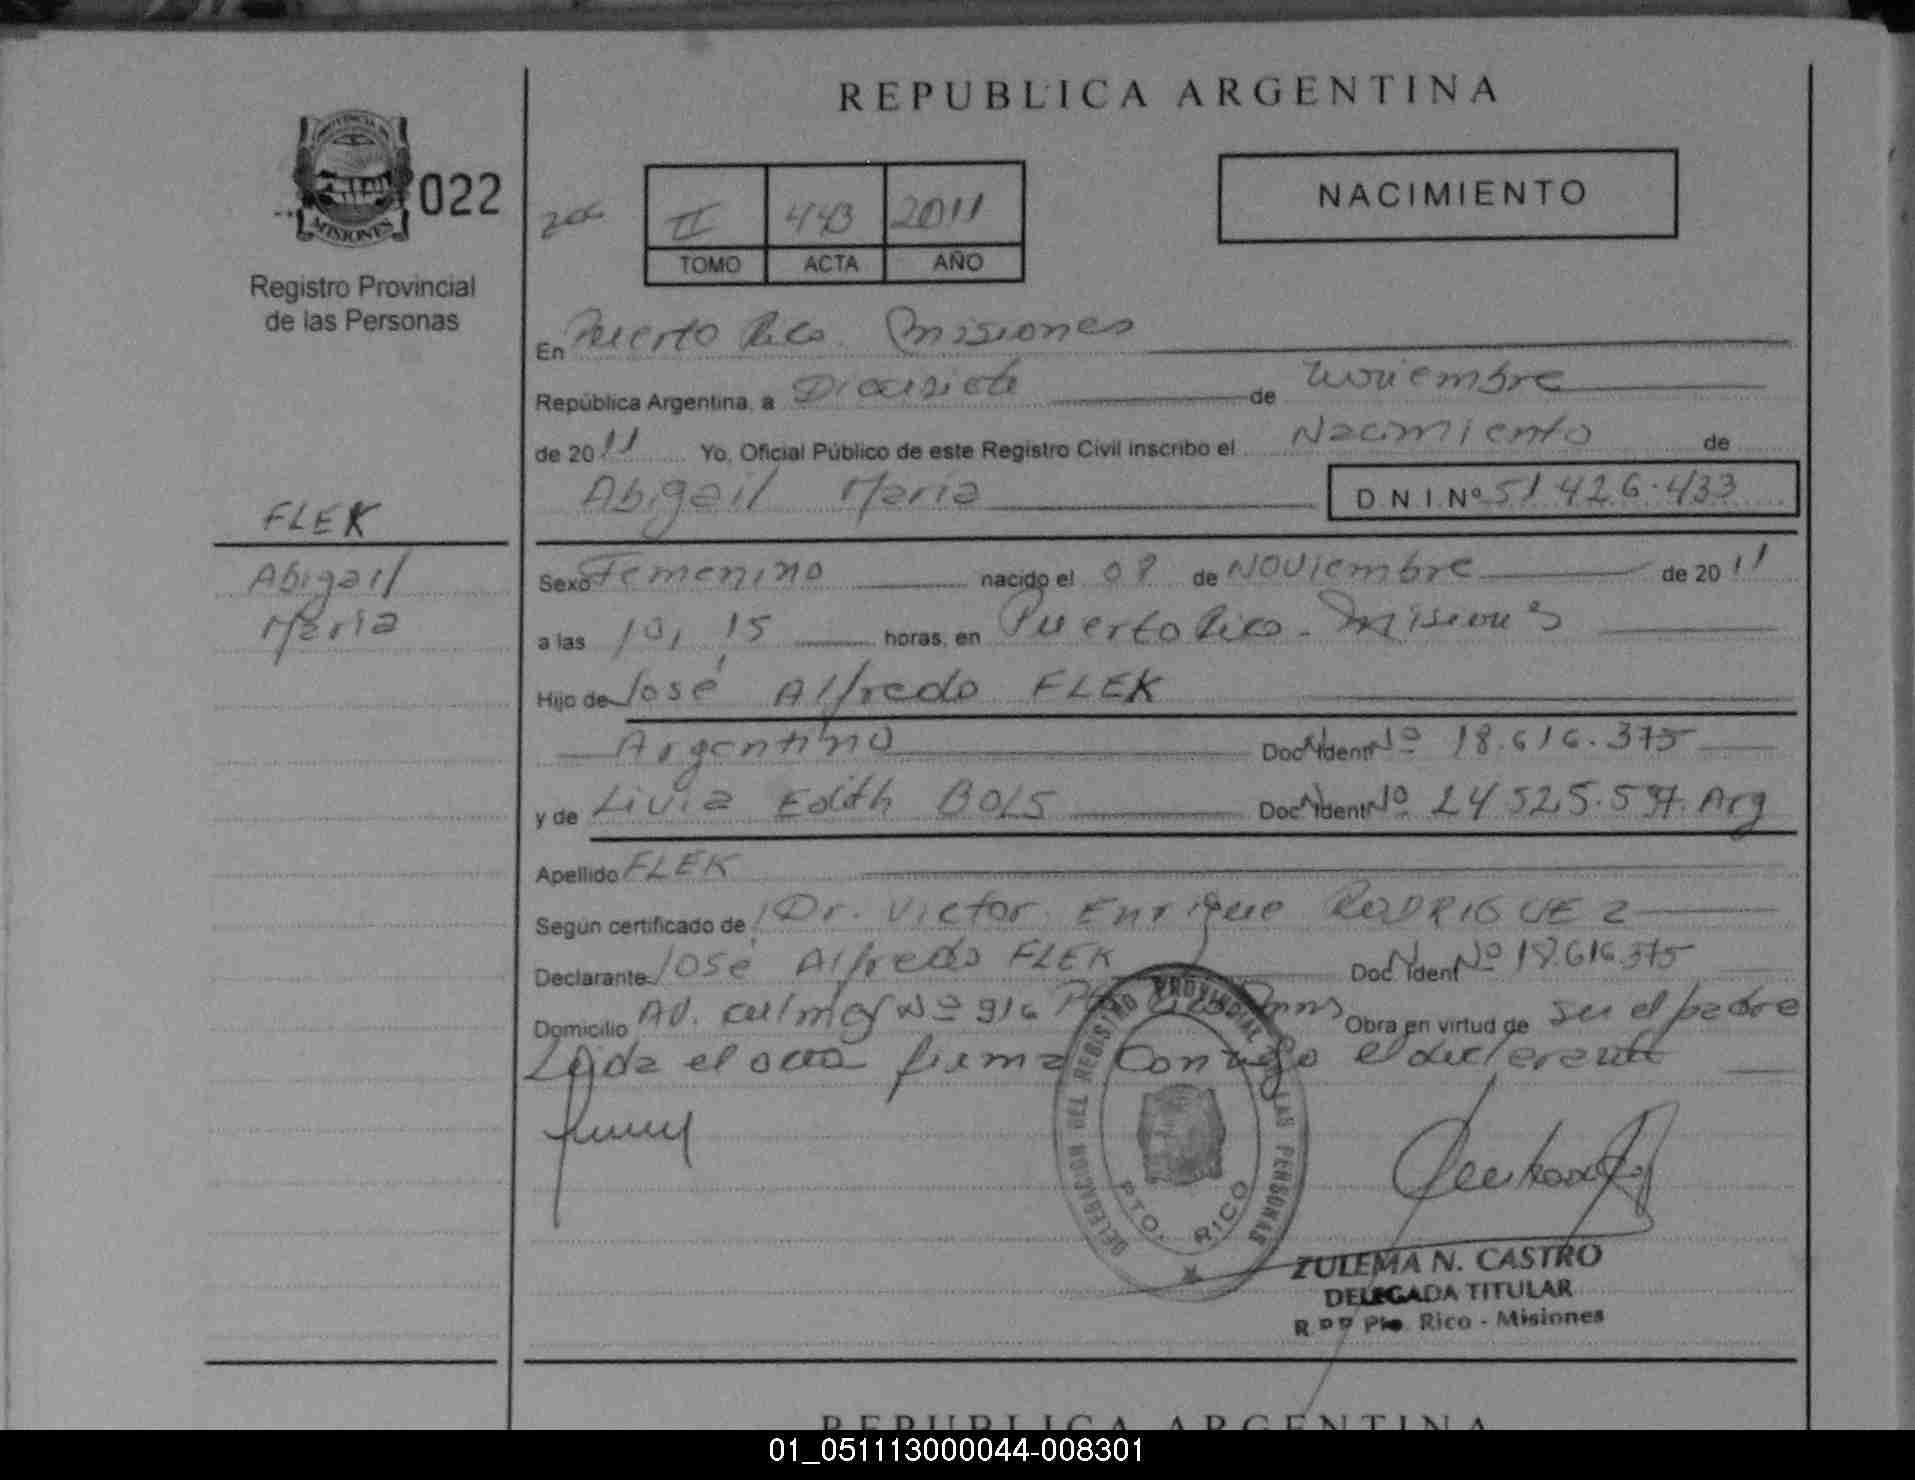 REPUBLICA ARGENTINA
PROVINCIA DE
MISIONES
022
Registro Provincial
de las Personas
II 443 2011
TOMO ACTA AÑO
NACIMIENTO
En Puerto Rico. Misiones
República Argentina, a Diecisiete de Noviembre
de 2011 Yo, Oficial Público de este Registro Civil inscribo el Nacimiento de
Abigail Maria D.N.I.Nº 51.426.433
FLEK
Abigail
Maria
Sexo Femenino nacido el 08 de Noviembre de 2011
a las 10,15 horas, en Puerto Rico - Misiones
Hijo de José Alfredo FLEK
Argentino Doc. Ident. Nº 18.616.375
y de Livia Edith BOLS Doc. Ident. Nº 24.525.597. Arg
Apellido FLEK
Según certificado de Dr. Victor Enrique RODRIGUEZ
Declarante José Alfredo FLEK Doc. Ident. Nº 18.616.375
Domicilio AV. Nº 916 Obra en virtud de ser el padre
Leida el acta firma conmigo el declarante
DELEGACION DEL REGISTRO PROVINCIAL DE LAS PERSONAS
PTO. RICO
ZULEMA N. CASTRO
DELEGADA TITULAR
R.P.P. Pto. Rico - Misiones
REPUBLICA ARGENTINA
01_051113000044-008301